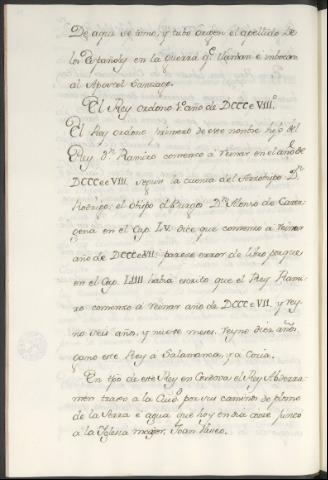 De aqui se tomo, y tubo origen el apellido de
los Españoles en la guerra q.e llaman e inbocan
al Apostol Santiago.
El Rey ordono 1.º año de DCCC e VIII.º
El Rey ordono primero de este nombre hijo del
Rey D.n Ramiro comenzo á reinar en el año de
DCCC e e VIII. segun la cuenta del Arzobispo D.n
Rodrigo; el obispo de Burgos D.n Alonso de Carta-
gena en el Cap. LV. dice que comenzo a reinar
año de DCCC e VII; parece error de libro porque
en el Cap. LIIII habia escrito que el Rey Rami-
ro comenzo á reinar año de DCCC e VII, y rey-
no seis años, y nueve meses. reyno diez años,
gano este Rey á Salamanca, y a Coria.
En tpo de este Rey en Cordova, el Rey Abderra-
men traxo a la Ciud.d por sus caminos de plomo
de la Sierra el agua que hoy en dia corre junto
a la Iglesia mayor.